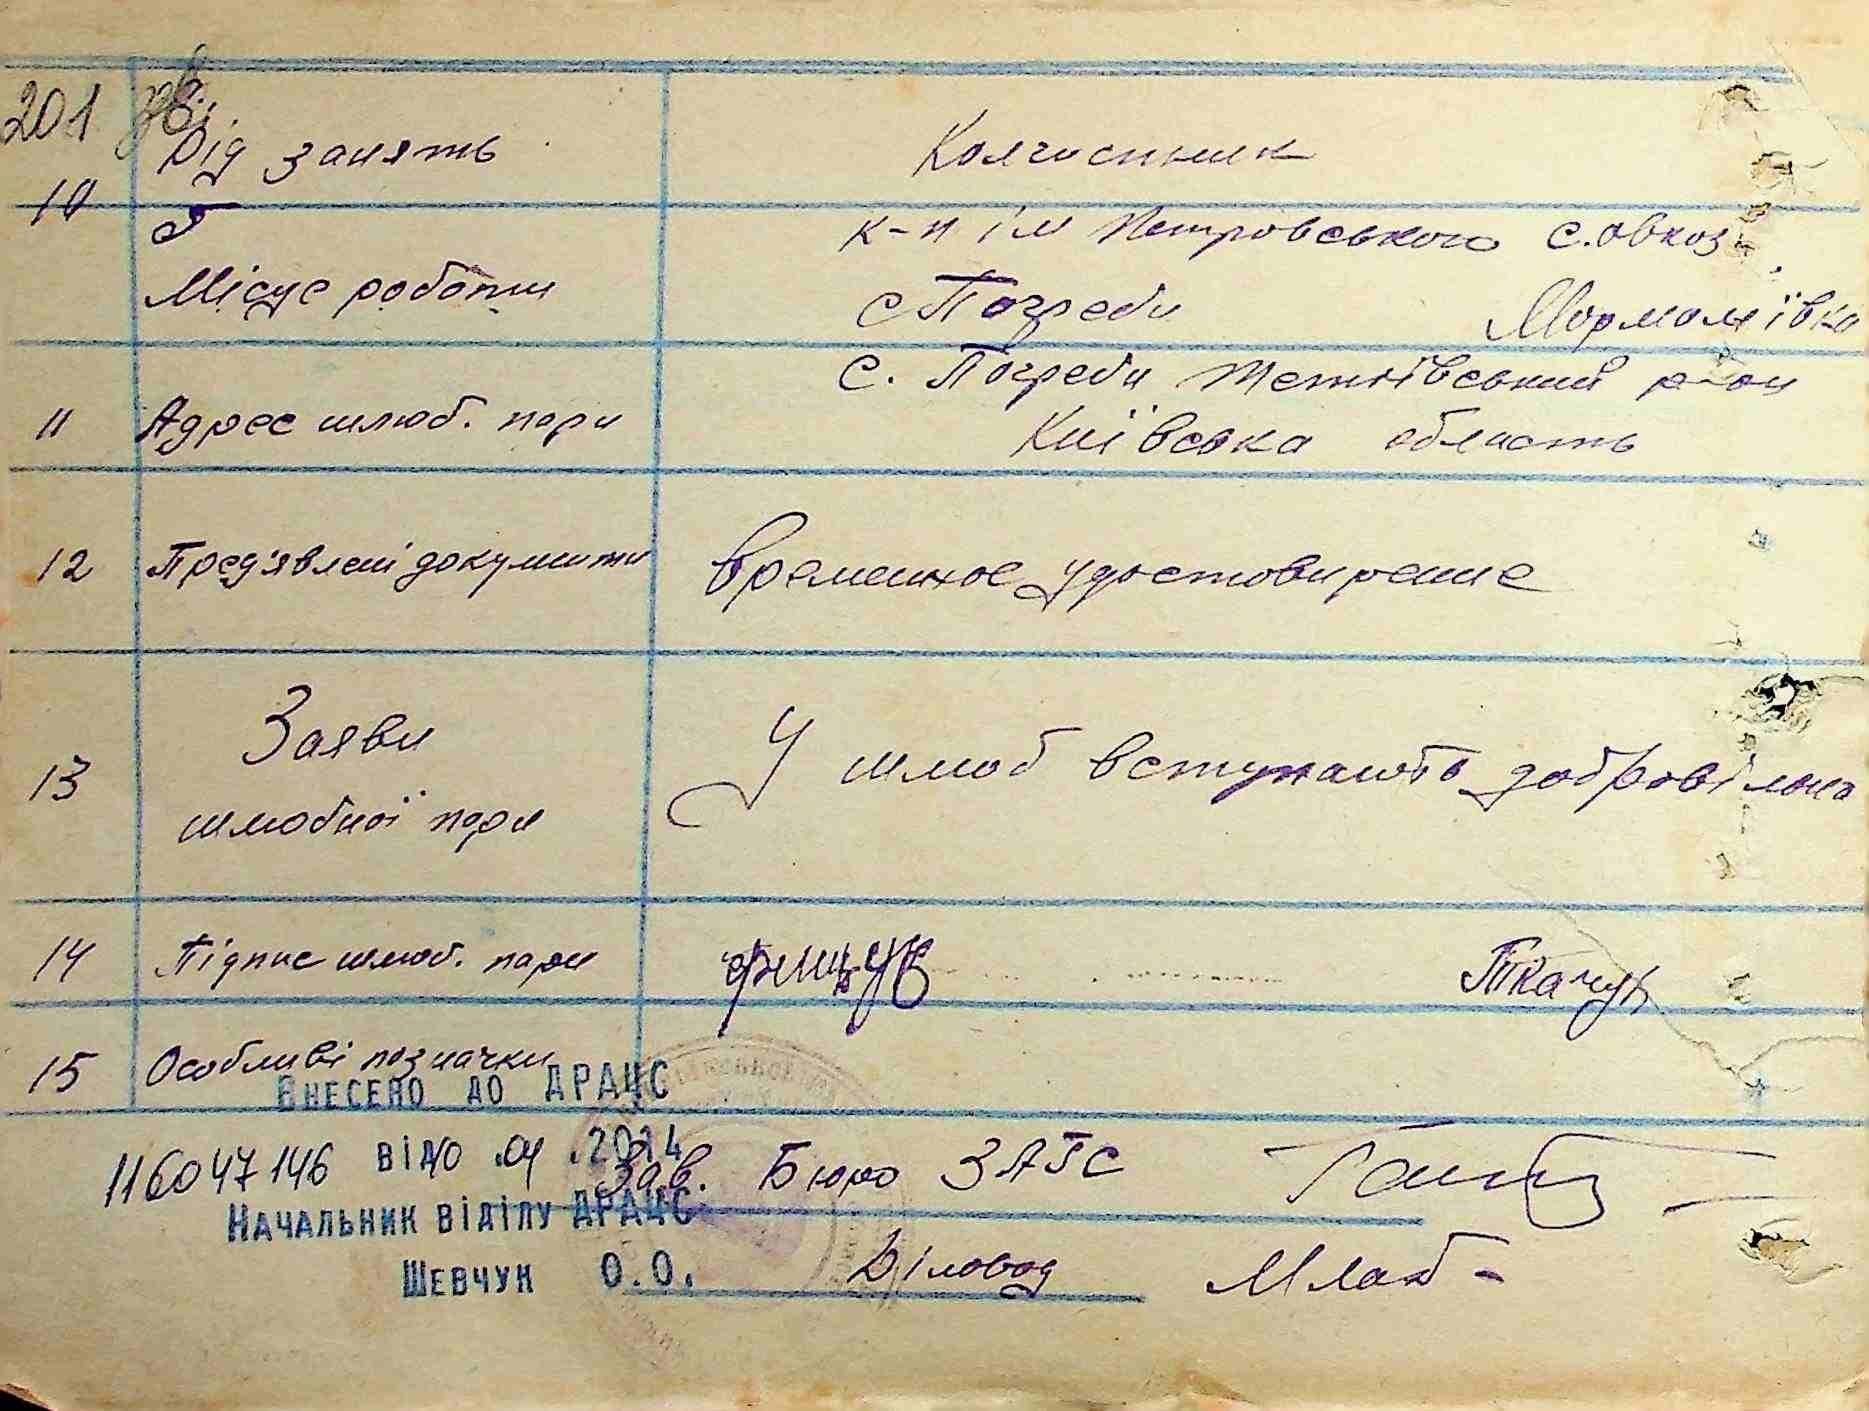 201 зв.
10 Рід занять Колгоспник
к-п ім Петровського с.овхоз
Місце роботи с Погреби
с. Погреби Тетіївський р-он
11 Адрес шлюб. пари Київська область
12 Пред'явлені документи Временное удостовирение
Заяви
13 У шлюб вступають добровільно
шлюбної пари
14 Підпис шлюб. пари Ткачук
15 Особливі позначки
Внесено до ДРАЦС
116047146 від 10 .04 .2014
Зав. Бюро ЗАГС
Начальник відділу ДРАЦС
Діловод
Шевчук О.О.